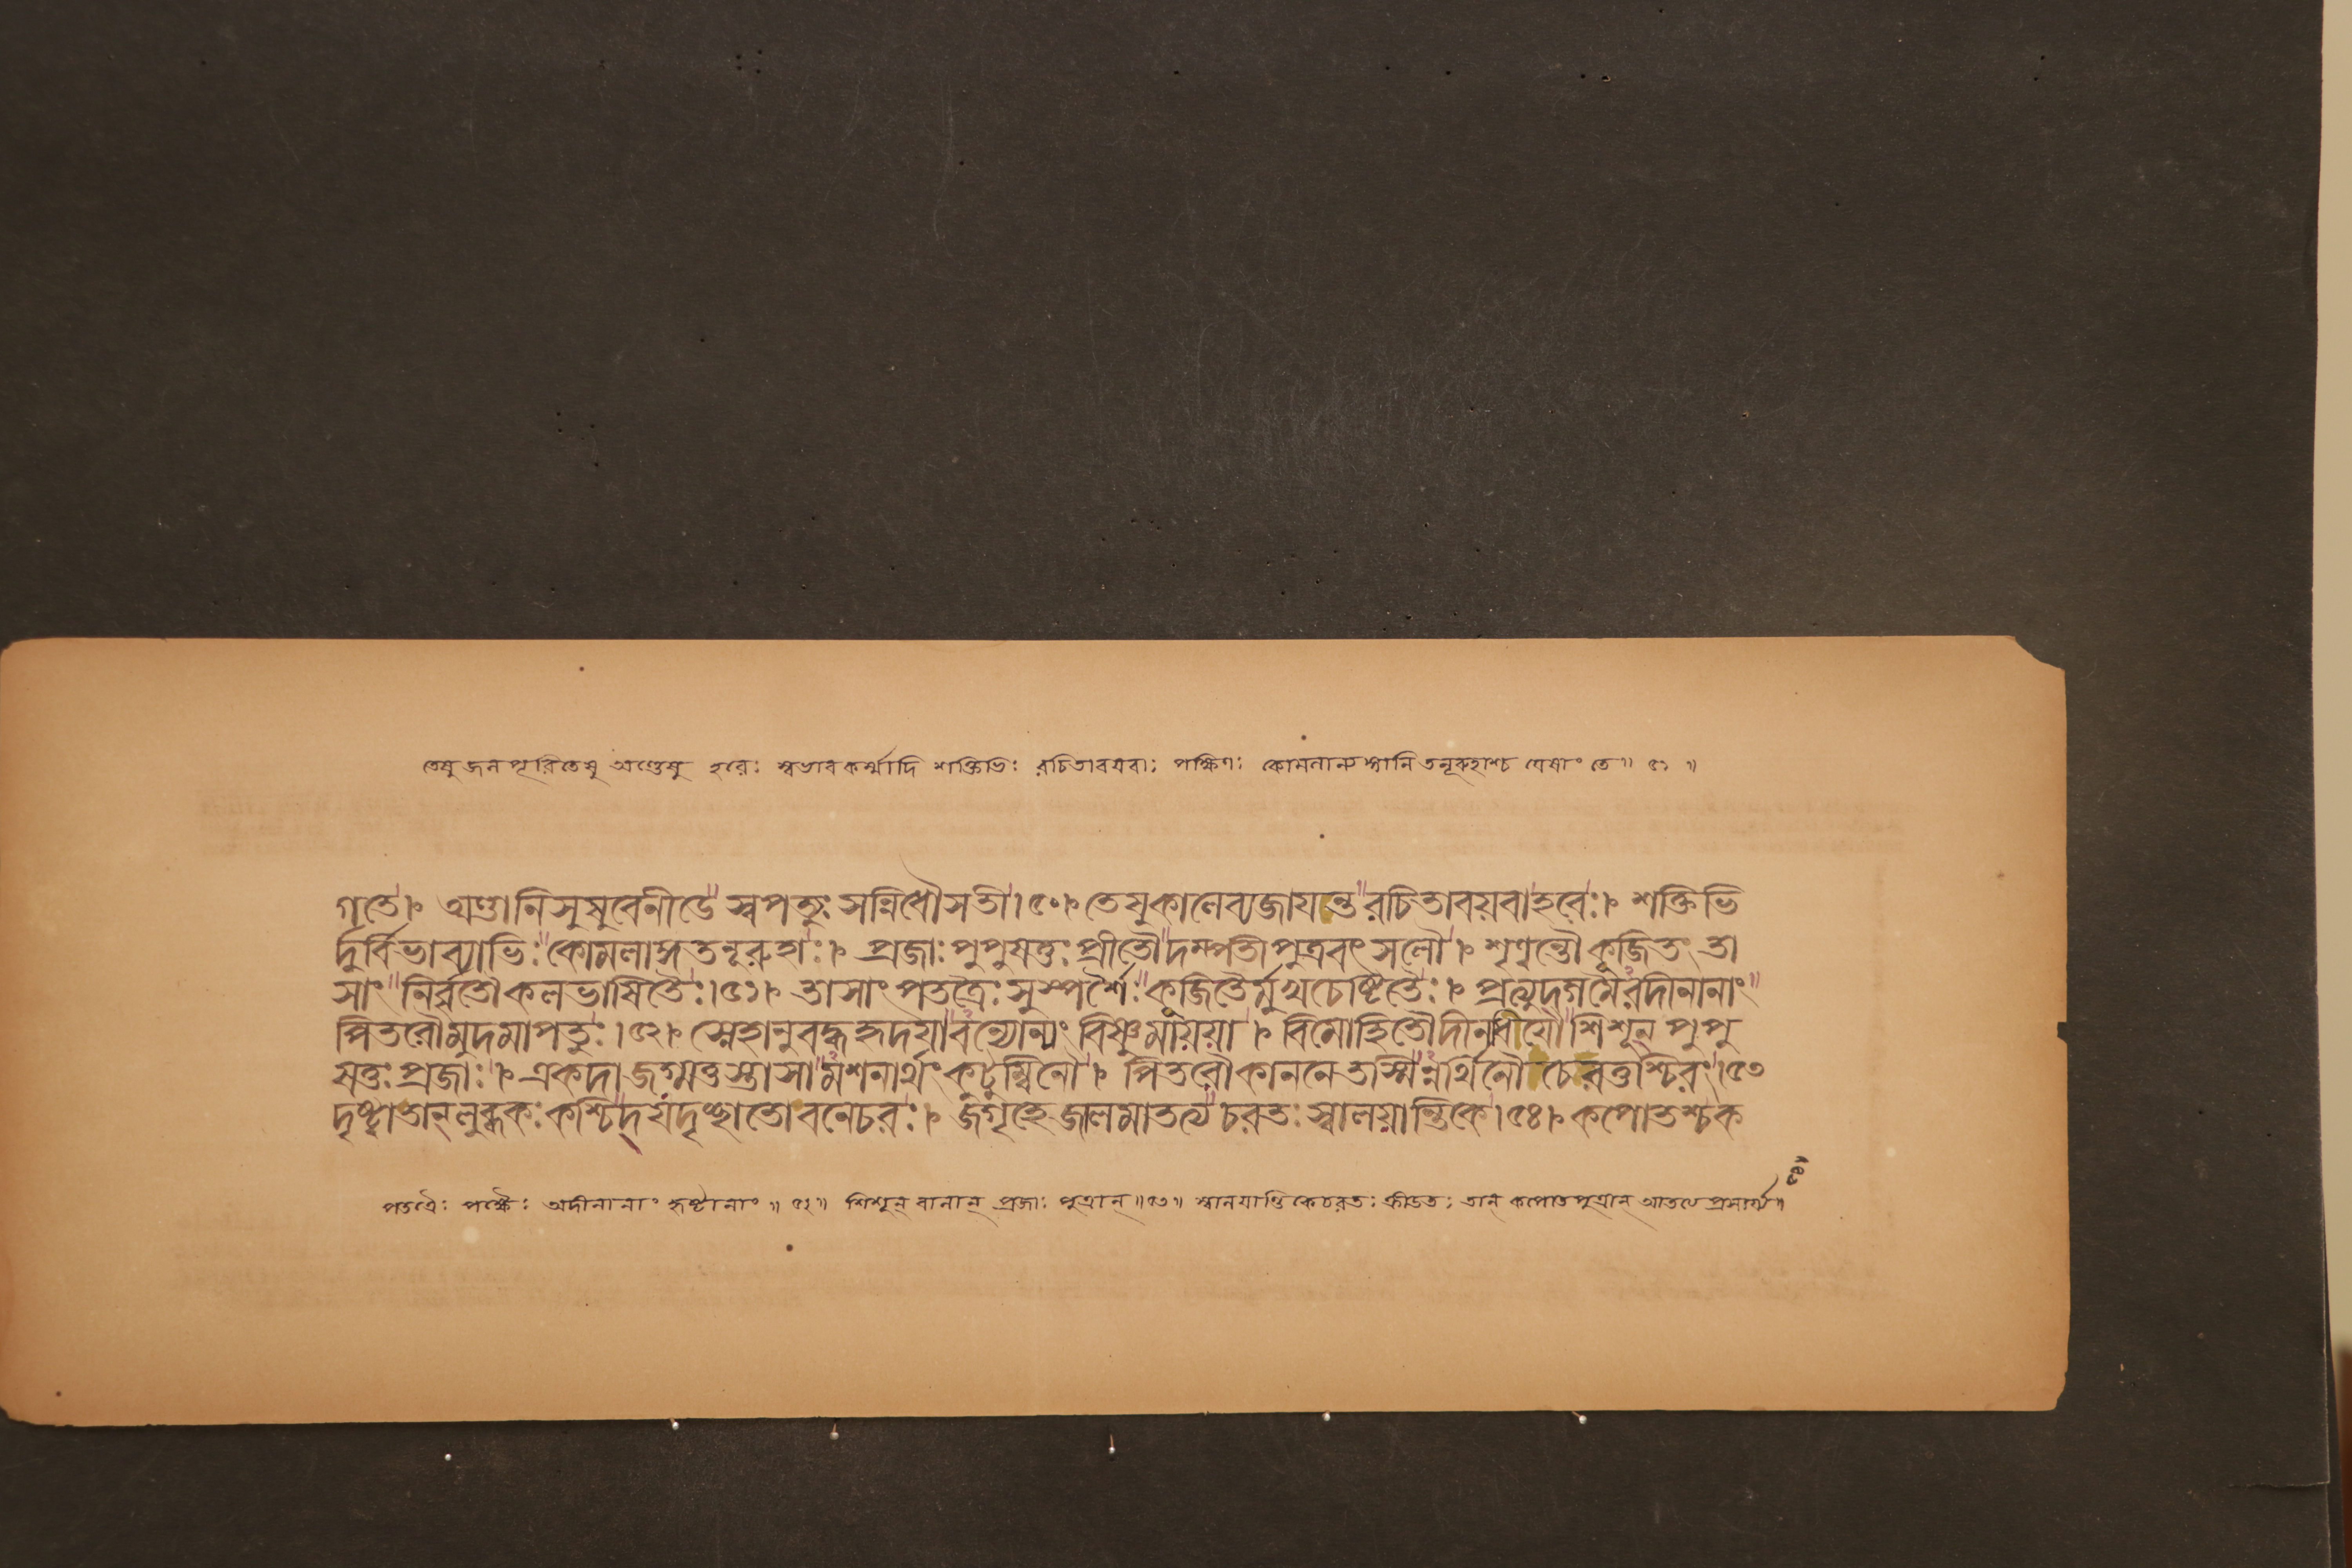 তেষু জলপূরিতেষু অণ্ডেষু হরেঃ স্বভাবকর্ম্মাদি শক্তিভিঃ রচিতাবয়বাঃ পক্ষিণঃ কোমলান্যঙ্গানি তনূরুহাশ্চ যেষাং তে॥ ৫১ ॥
গতে। অণ্ডানিসুষুবেনীডে স্বপত্যুঃ সন্নিধৌসতী।৫০। তেষুকালেব্যজায়ন্ত রচিতাবয়বাহরেঃ। শক্তিভি
র্দুর্বিভাব্যাভিঃ কোমলাঙ্গতনূরুহাঃ। প্রজাঃ পুপুষতুঃ প্রীতৌ দম্পতীপুত্রবৎসলৌ। শৃণ্বন্তৌ কূজিতং তা
সাং নির্বৃতৌকলভাষিতৈঃ।৫১। তাসাং পতত্রৈঃ সুস্পর্শৈঃ কূজিতৈর্মুগ্ধচেষ্টিতৈঃ। প্রত্যুদ্গমৈরদীনানাং
পিতরৌমুদমাপতুঃ।৫২। স্নেহানুবদ্ধহৃদয়াবন্যোন্যং বিষ্ণুমায়য়া। বিমোহিতৌদীনধীয়ৌ শিশূন্ পুপু
ষতুঃ প্রজাঃ। একদা জগ্মতুস্তাসামশনার্থং কুটুম্বিনৌ। পিতরৌকাননেতস্মিন্নর্থিনৌ চেরতুশ্চিরং।৫৩
দৃষ্ট্বাতান্ লুব্ধকঃ কশ্চিদ্ যদৃচ্ছাতোবনেচরঃ। জগৃহে জালমাতত্য চরতঃ স্বালয়ান্তিকে।৫৪। কপোতশ্চক
পতত্রৈঃ পক্ষৈঃ অদীনানাং হৃষ্টানাং॥ ৫২॥ শিশূন্ বালান্ প্রজাঃ পুত্রান্॥৫৩॥ স্বালয়ান্তিকেচরতঃ ক্রীডতঃ তান্ কপোতপুত্রান্ আতত্য প্রসার্য্য॥